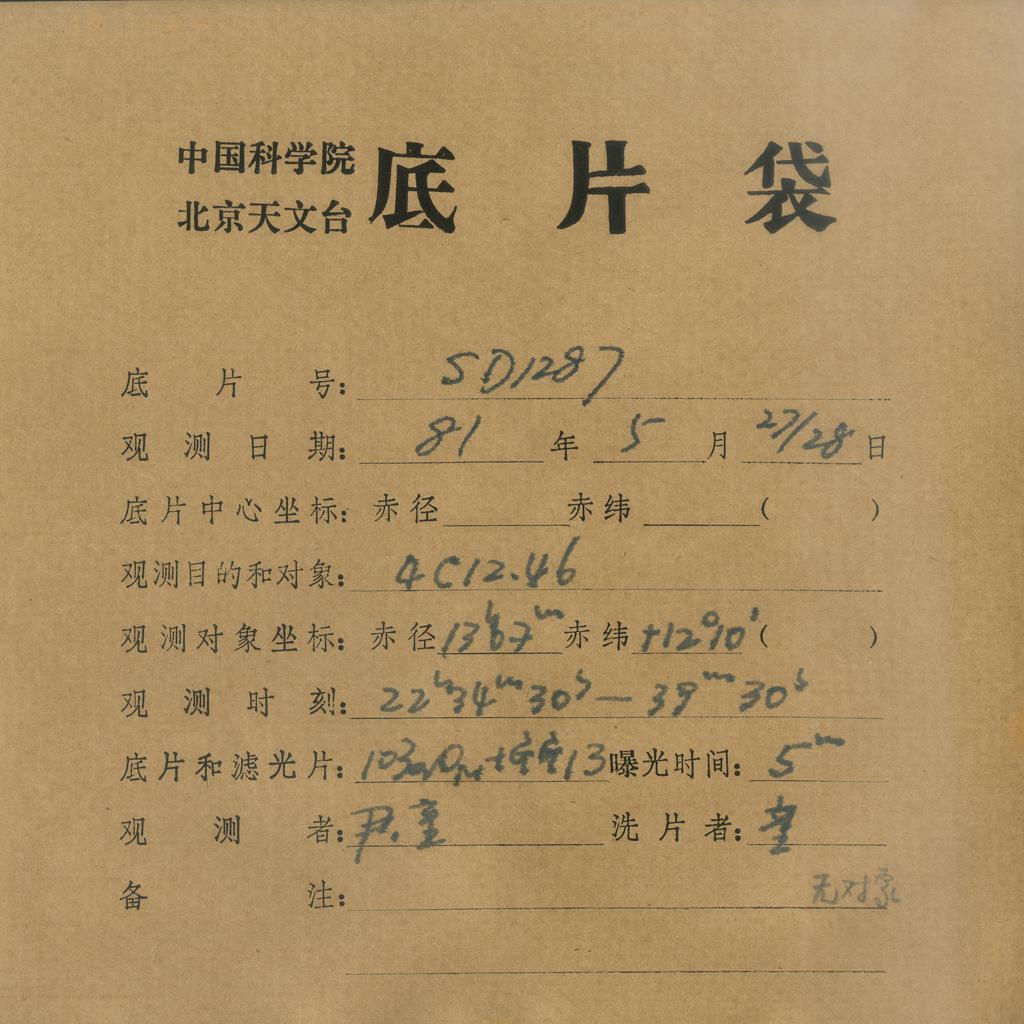 中国科学院
北京天文台
底片袋
底片号: SD1287
观测日期: 81 年 5 月 27/28 日
底片中心坐标: 赤径 赤纬 ( )
观测目的和对象: 4C12.46
观测对象坐标: 赤径 13h 7m 赤纬 +12°10′ ( )
观测时刻: 22h34m30s — 39m30s
底片和滤光片: 13 曝光时间: 5m
观测者: 尹.
洗片者:
备注: 无对象